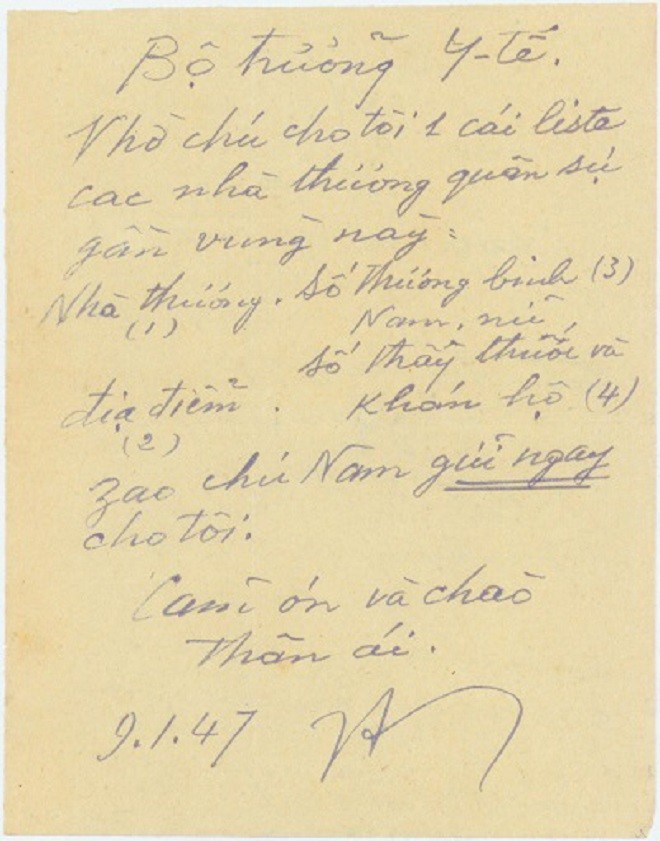 Bộ trưởng Y-tế.
Nhờ chú cho tôi 1 cái liste
các nhà thương quân sự
gần vùng này:
Nhà thương. Số thương binh (3)
(1) Nam, nữ,
Số thầy thuốc và
địa điểm. khán hộ (4)
(2)
zao chú Nam gửi ngay
cho tôi.
Cảm ơn và chào
thân ái.
9.1.47